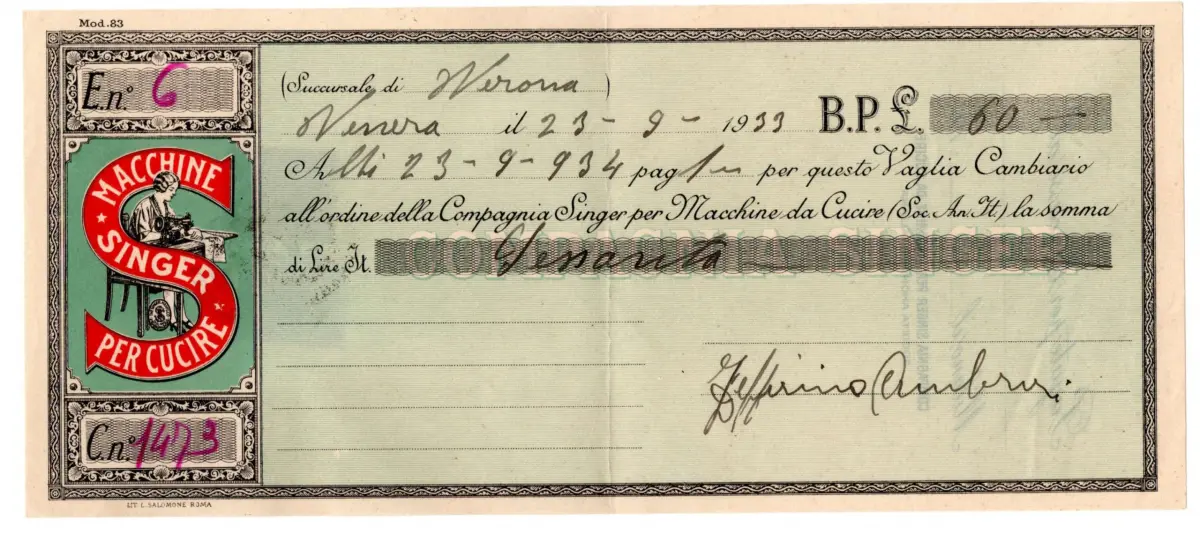 Mod.83
E.n.º 6
MACCHINE
SINGER
PER CUCIRE
C.n.º 1473
LIT. L. SALOMONE ROMA
(Succursale di Verona)
il 23 - 9 - 1933 B.P.£. 60
Alli 23 - 9 - 934 pag per questo Vaglia Cambiario
all'ordine della Compagnia Singer per Macchine da Cucire (Soc. An. It.) la somma
di Lire It. Sessanta
COMPAGNIA SINGER
Zeffirino